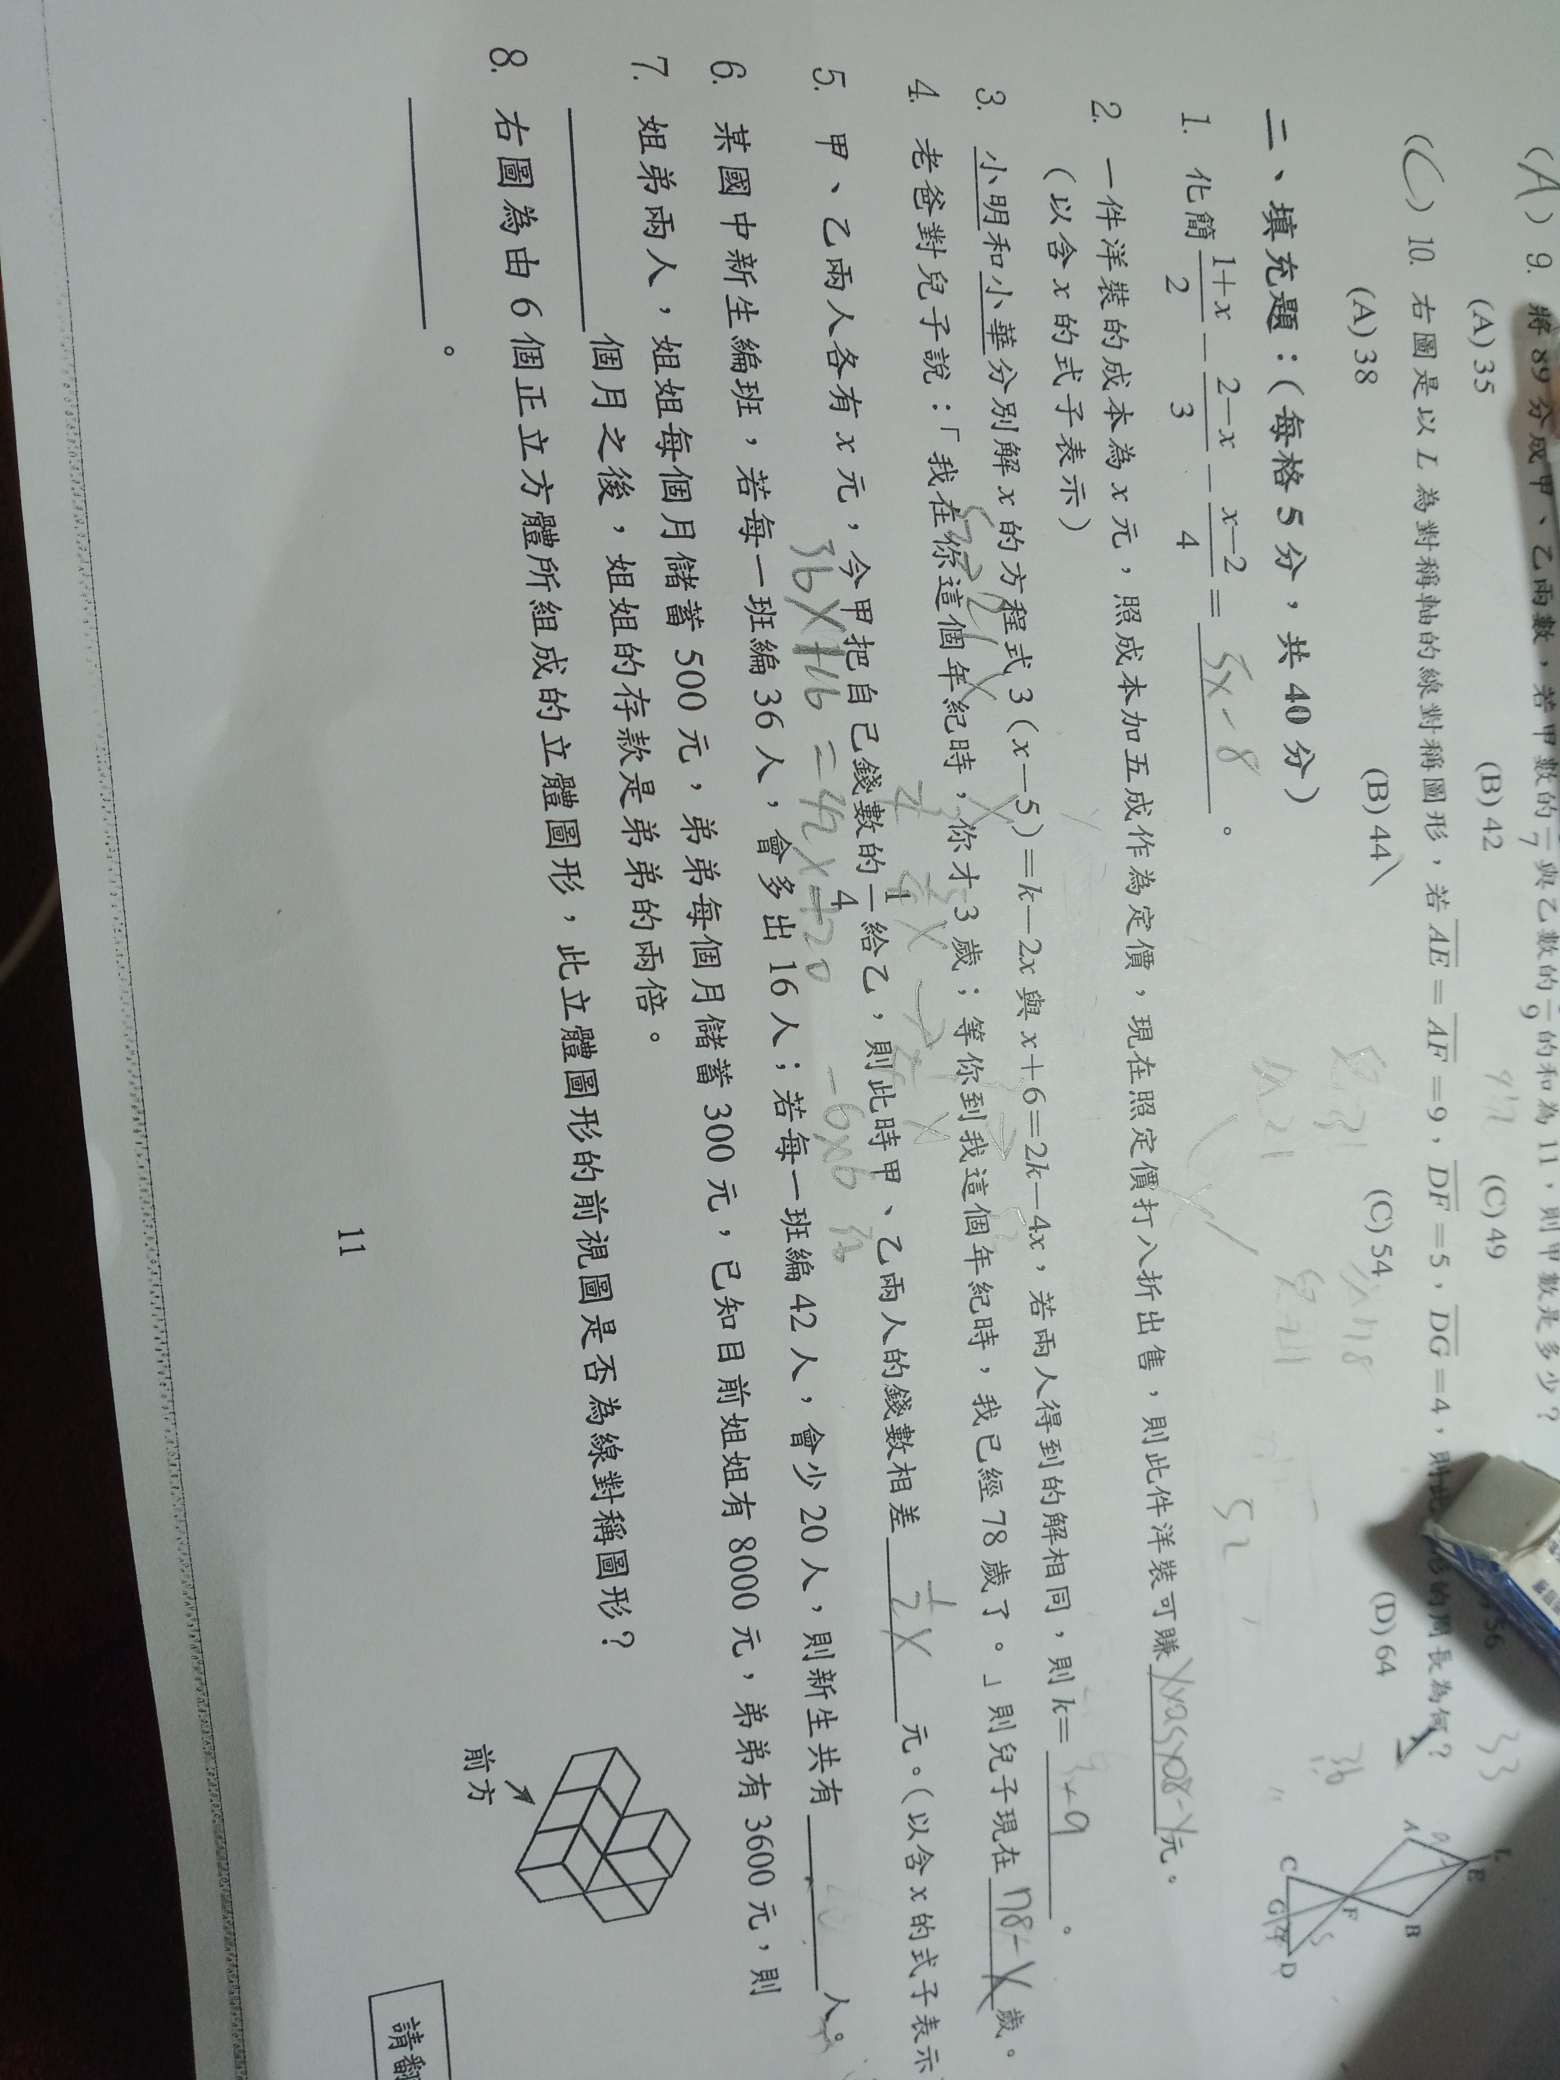 (A) 9. 將 89 分成甲、乙兩數,若甲數的 1/7 與乙數的 1/9 的和為 11,則甲數是多少?
(A) 35 (B) 42 (C) 49 56
(C) 10. 右圖是以 L 為對稱軸的線對稱圖形,若 AE=AF=9,DF=5,DG=4,則此 形的周長為何?
(A) 38 (B) 44 (C) 54 (D) 64
L A E B F C G D
33
36
二、填充題:(每格 5 分,共 40 分)
1. 化簡 (1+x)/2 - (2-x)/3 - (x-2)/4 = 5x-8 。
2. 一件洋裝的成本為 x 元,照成本加五成作為定價,現在照定價打八折出售,則此件洋裝可賺 元。
(以含 x 的式子表示)
3. 小明和小華分別解 x 的方程式 3(x-5)=k-2x 與 x+6=2k-4x,若兩人得到的解相同,則 k= 。
4. 老爸對兒子說:「我在你這個年紀時,你才 3 歲;等你到我這個年紀時,我已經 78 歲了。」則兒子現在 78-x 歲。
5. 甲、乙兩人各有 x 元,今甲把自己錢數的 1/4 給乙,則此時甲、乙兩人的錢數相差 1/2 x 元。(以含 x 的式子表示
36x+16=42x-20
6. 某國中新生編班,若每一班編 36 人,會多出 16 人;若每一班編 42 人,會少 20 人,則新生共有 人。
7. 姐弟兩人,姐姐每個月儲蓄 500 元,弟弟每個月儲蓄 300 元,已知目前姐姐有 8000 元,弟弟有 3600 元,則
個月之後,姐姐的存款是弟弟的兩倍。
8. 右圖為由 6 個正立方體所組成的立體圖形,此立體圖形的前視圖是否為線對稱圖形?
。
前方
11
請翻